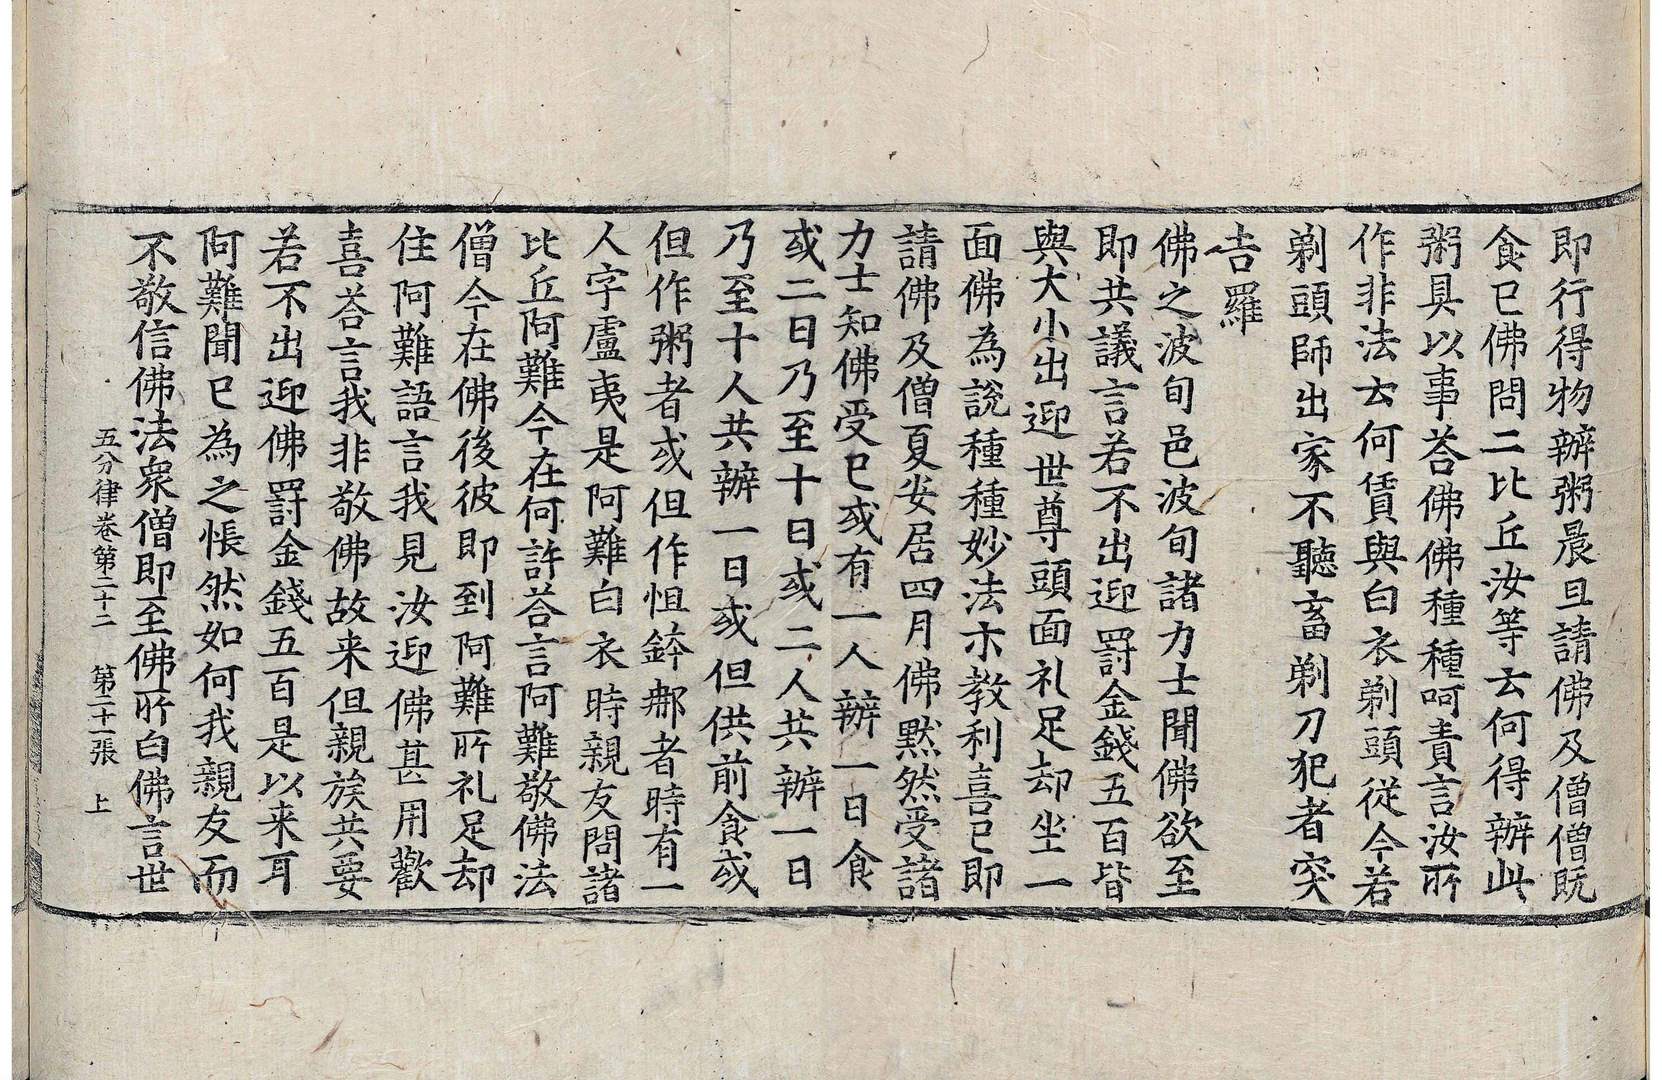 即行得物辦粥晨旦請佛及僧僧既
食已佛問二比丘汝等云何得辦此
粥具以事荅佛佛種種呵責言汝所
作非法云何賃與白衣剃頭從今若
剃頭師出家不聽畜剃刀犯者突
吉羅
佛之波旬邑波旬諸力士聞佛欲至
即共議言若不出迎罸金錢五百皆
與大小出迎世尊頭面礼足却坐一
面佛為說種種妙法示教利喜已即
請佛及僧夏安居四月佛黙然受諸
力士知佛受已或有一人辦一日食
或二日乃至十日或二人共辦一日
乃至十人共辦一日或但供前食或
但作粥者或但作怛鉢郍者時有一
人字盧夷是阿難白衣時親友問諸
比丘阿難今在何許荅言阿難敬佛法
僧今在佛後彼即到阿難所礼足却
住阿難語言我見汝迎佛甚用歡
喜荅言我非敬佛故来但親族共要
若不出迎佛罸金錢五百是以来耳
阿難聞已為之悵然如何我親友而
不敬信佛法衆僧即至佛所白佛言世
五分律卷第二十二 第二十一張 上